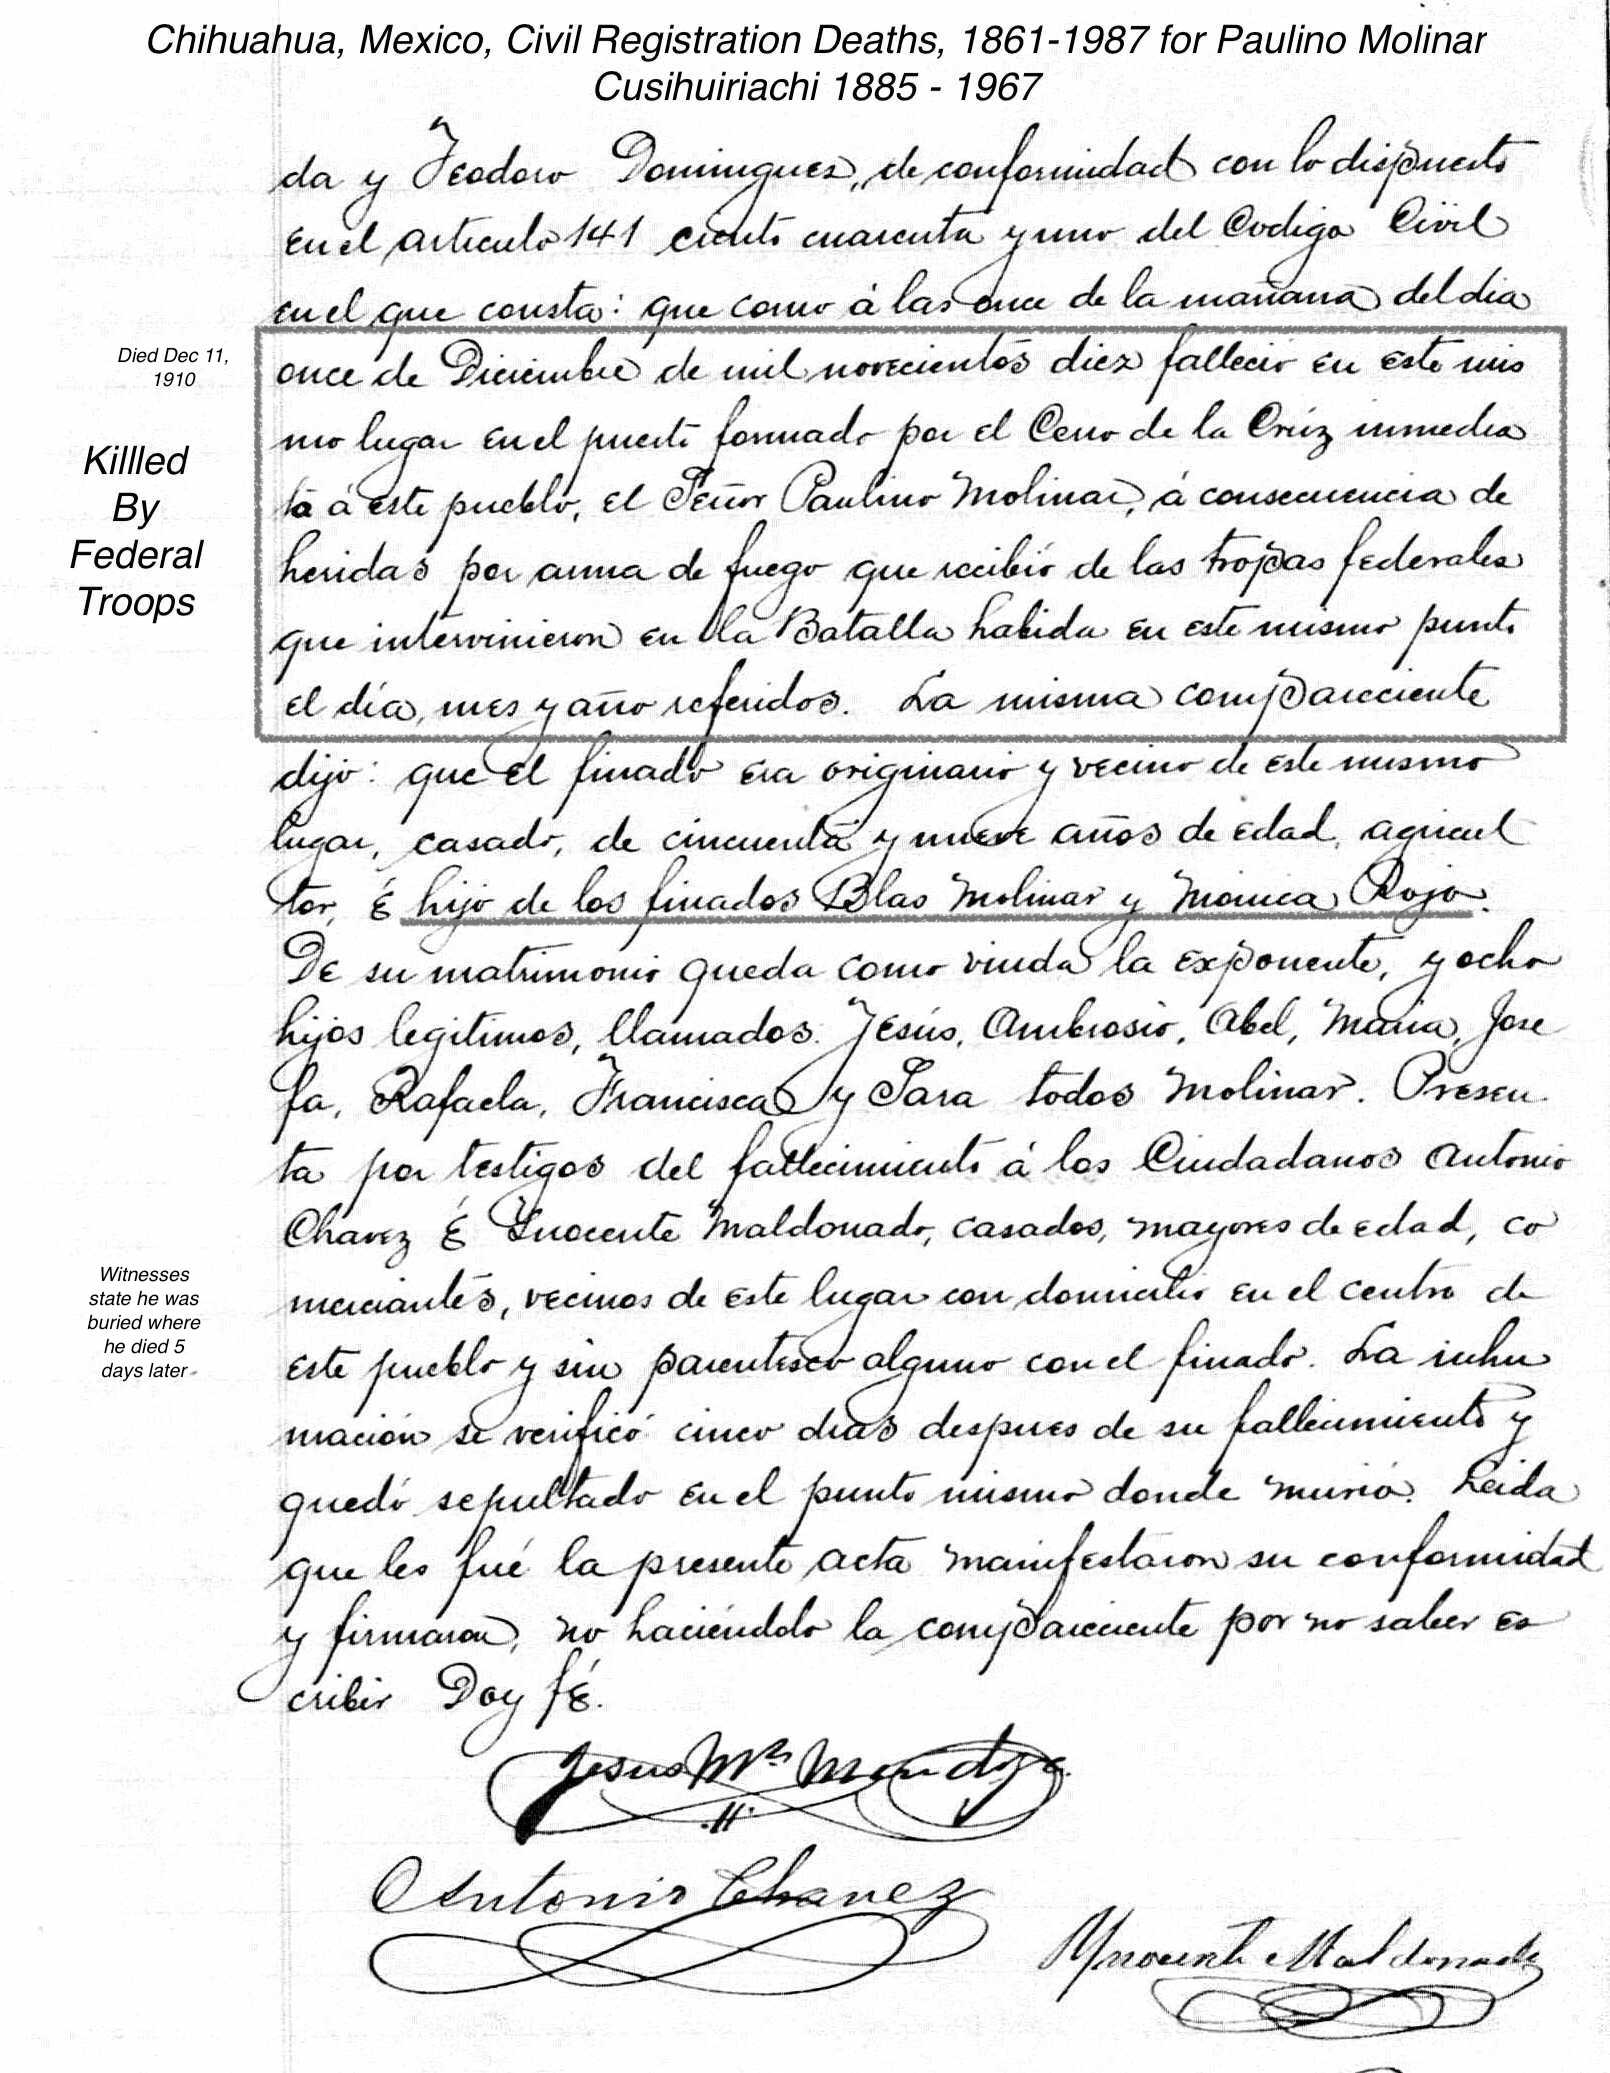 Chihuahua, Mexico, Civil Registration Deaths, 1861-1987 for Paulino Molinar
Cusihuiriachi 1885 - 1967
da y Teodoro Dominguez, de conformidad con lo dispuesto
en el articulo 141 ciento cuarenta y uno del Codigo Civil
en el que consta: que como á las once de la mañana del dia
Died Dec 11,
1910
once de Diciembre de mil novecientos diez fallecio en este mis
mo lugar en el puerto formado por el Cerro de la Crúz inmedia
to á este pueblo, el Señor Paulino Molinar, á consecuencia de
heridas por arma de fuego que recibió de las tropas federales
que intervinieron en la Batalla habida en este mismo punto
el día, mes y año referidos. La misma compareciente
Killled
By
Federal
Troops
dijo: que el finado era originario y vecino de este mismo
lugar, casado, de cincuenta y nueve años de edad, agricul
tor, é hijo de los finados Blas Molinar y Mónica Rojo.
De su matrimonio queda como viuda la exponente, y ocho
hijos legitimos, llamados: Jesús, Ambrosio, Abel, Maria, Jose
fa, Rafaela, Francisca y Sara todos Molinar. Presen
ta por testigos del fallecimiento á los Ciudadanos Antonio
Chavez é Ynocente Maldonado, casados, mayores de edad, co
merciantes, vecinos de este lugar con domicilio en el centro de
este pueblo y sin parentesco alguno con el finado. La inhu
mación se verificó cinco dias despues de su fallecimiento y
quedó sepultado en el punto mismo donde murió. Leida
que les fué la presente acta manifestaron su conformidad
y firmaron, no haciéndolo la compareciente por no saber es
cribir Doy fé.
Witnesses
state he was
buried where
he died 5
days later
Jesus Ma Mendoza
Antonio Chavez
Ynocente Maldonado